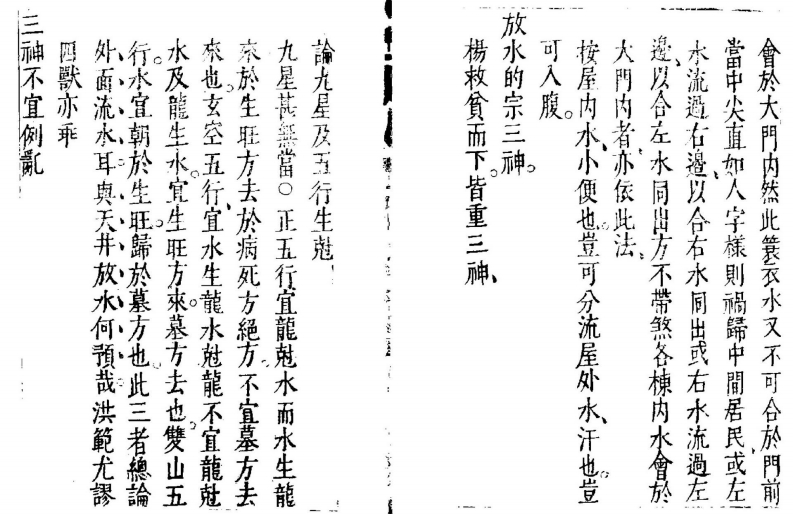 會於大門內然此簑衣水又不可合於門前
當中尖直如人字樣則禍歸中間居民或左
水流過右邊、以合右水同出或右水流過左
邊、以合左水同出方不帶煞各棟內水會於
大門內者、亦依此法、
按屋內水、小便也。豈可分流屋外水、汗也。豈
可入腹。
放水的宗三神。
楊救貧而下。皆重三神、
論九星及五行生尅
九星甚無當○正五行宜龍尅水而水生龍
來於生旺方去於病死方絕方不宜墓方去
來也。玄空五行、宜水生龍水尅龍不宜龍尅
水及龍生水。宜生旺方來。墓方去也。雙山五
行、水宜朝於生旺。歸於墓方也。此三者總論
外面流水耳與天井放水何預哉。洪範尤謬
四獸亦乖
三神不宜例亂